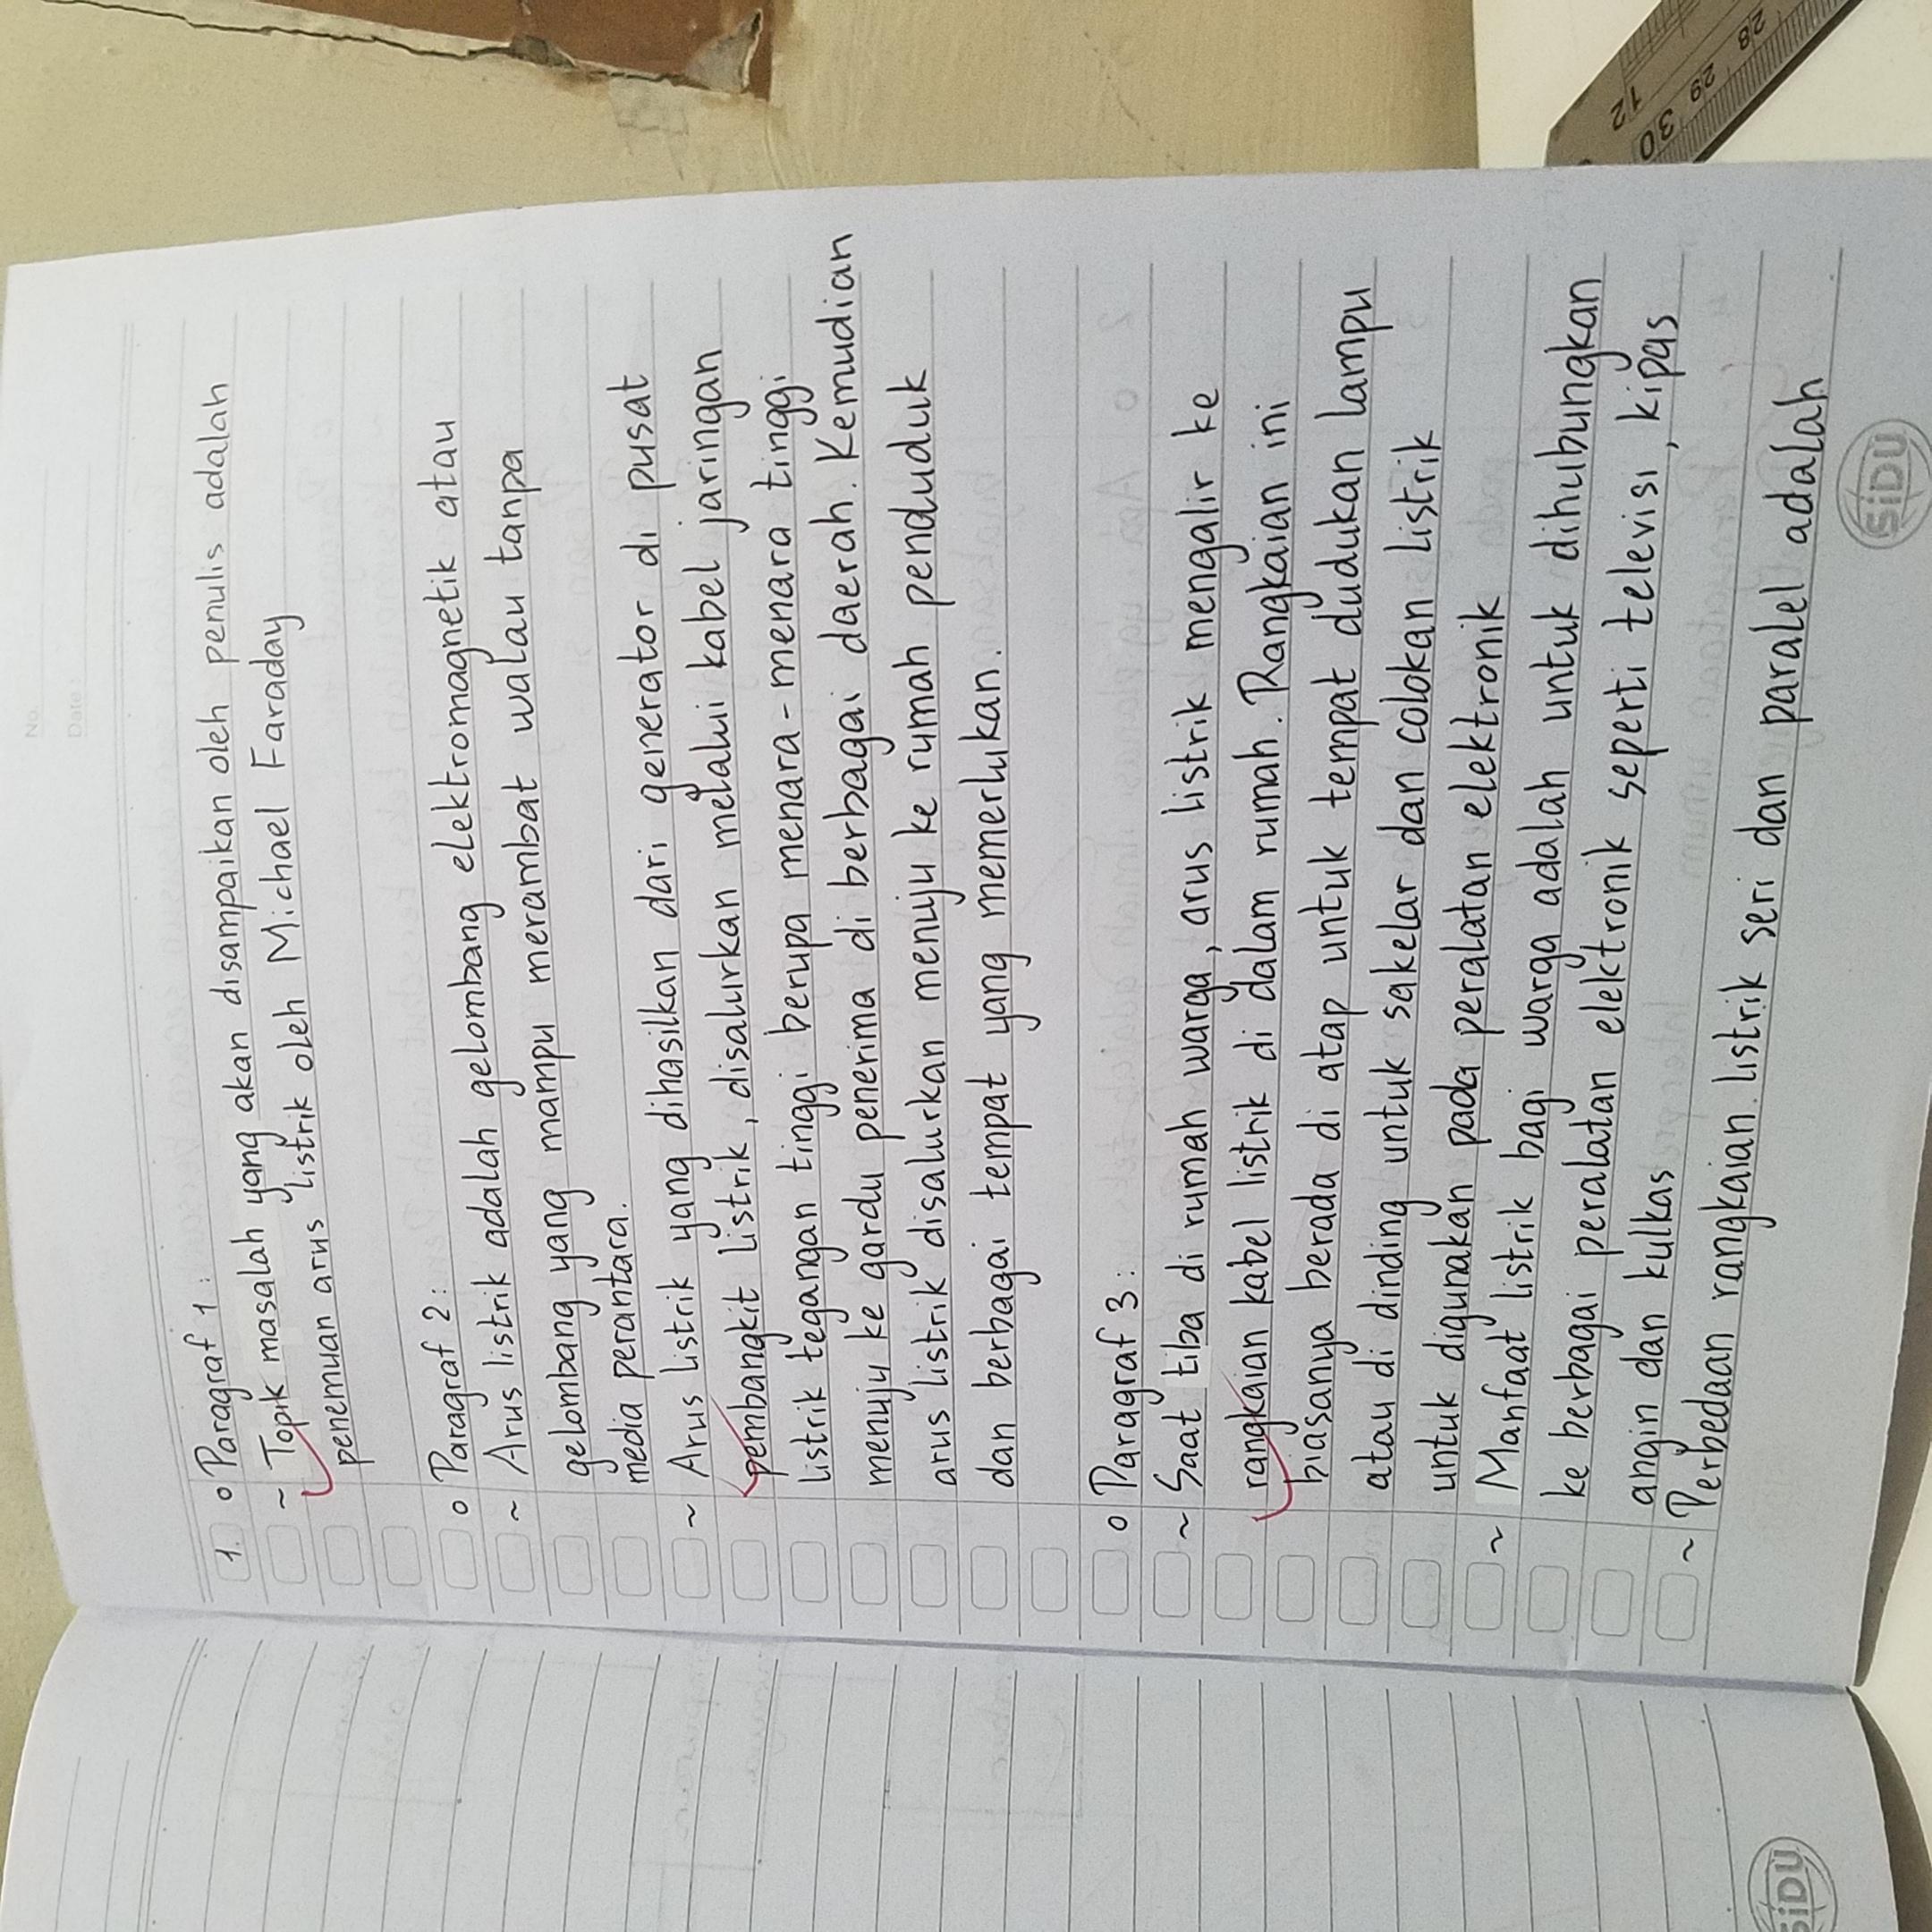 No.
Date:
1. o Paragraf 1:
~ Topik masalah yang akan disampaikan oleh penulis adalah
penemuan arus listrik oleh Michael Faraday
o Paragraf 2:
~ Arus listrik adalah gelombang elektromagnetik atau
gelombang yang mampu merambat walau tanpa
media perantara.
~ Arus listrik yang dihasilkan dari generator di pusat
pembangkit listrik, disalurkan melalui kabel jaringan
listrik tegangan tinggi berupa menara-menara tinggi
menuju ke gardu penerima di berbagai daerah. Kemudian
arus listrik disalurkan menuju ke rumah penduduk
dan berbagai tempat yang memerlukan.
o Paragraf 3:
~ Saat tiba di rumah warga, arus listrik mengalir ke
rangkaian kabel listrik di dalam rumah. Rangkaian ini
biasanya berada di atap untuk tempat dudukan lampu
atau di dinding untuk sakelar dan colokan listrik
untuk digunakan pada peralatan elektronik
~ Manfaat listrik bagi warga adalah untuk dihubungkan
ke berbagai peralatan elektronik seperti televisi, kipas
angin dan kulkas
~ Perbedaan rangkaian listrik seri dan paralel adalah
SiDU
SiDU
12
30
29
28